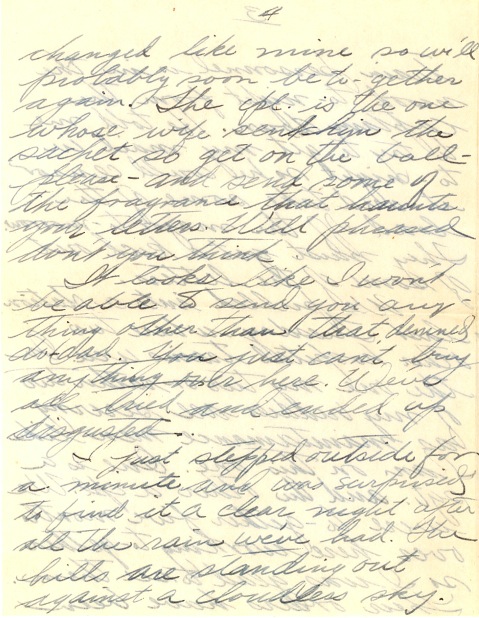 4
changed like mine so we'll
probably soon be to-gether
again. The cpl. is the one
whose wife sent him the
sachet so get on the ball-
please - and send some of
the fragrance that haunts
your letters. Well phrased
don't you think.
It looks like I won't
be able to send you any-
thing other than that demned
do-dad. You just can't buy
anything over here. U'eve
all tried and ended up
disgusted.
I just stepped outside for
a minute and was surprised
to find it a clear night after
all the rain we've had. The
hills are standing out
against a cloudless sky.